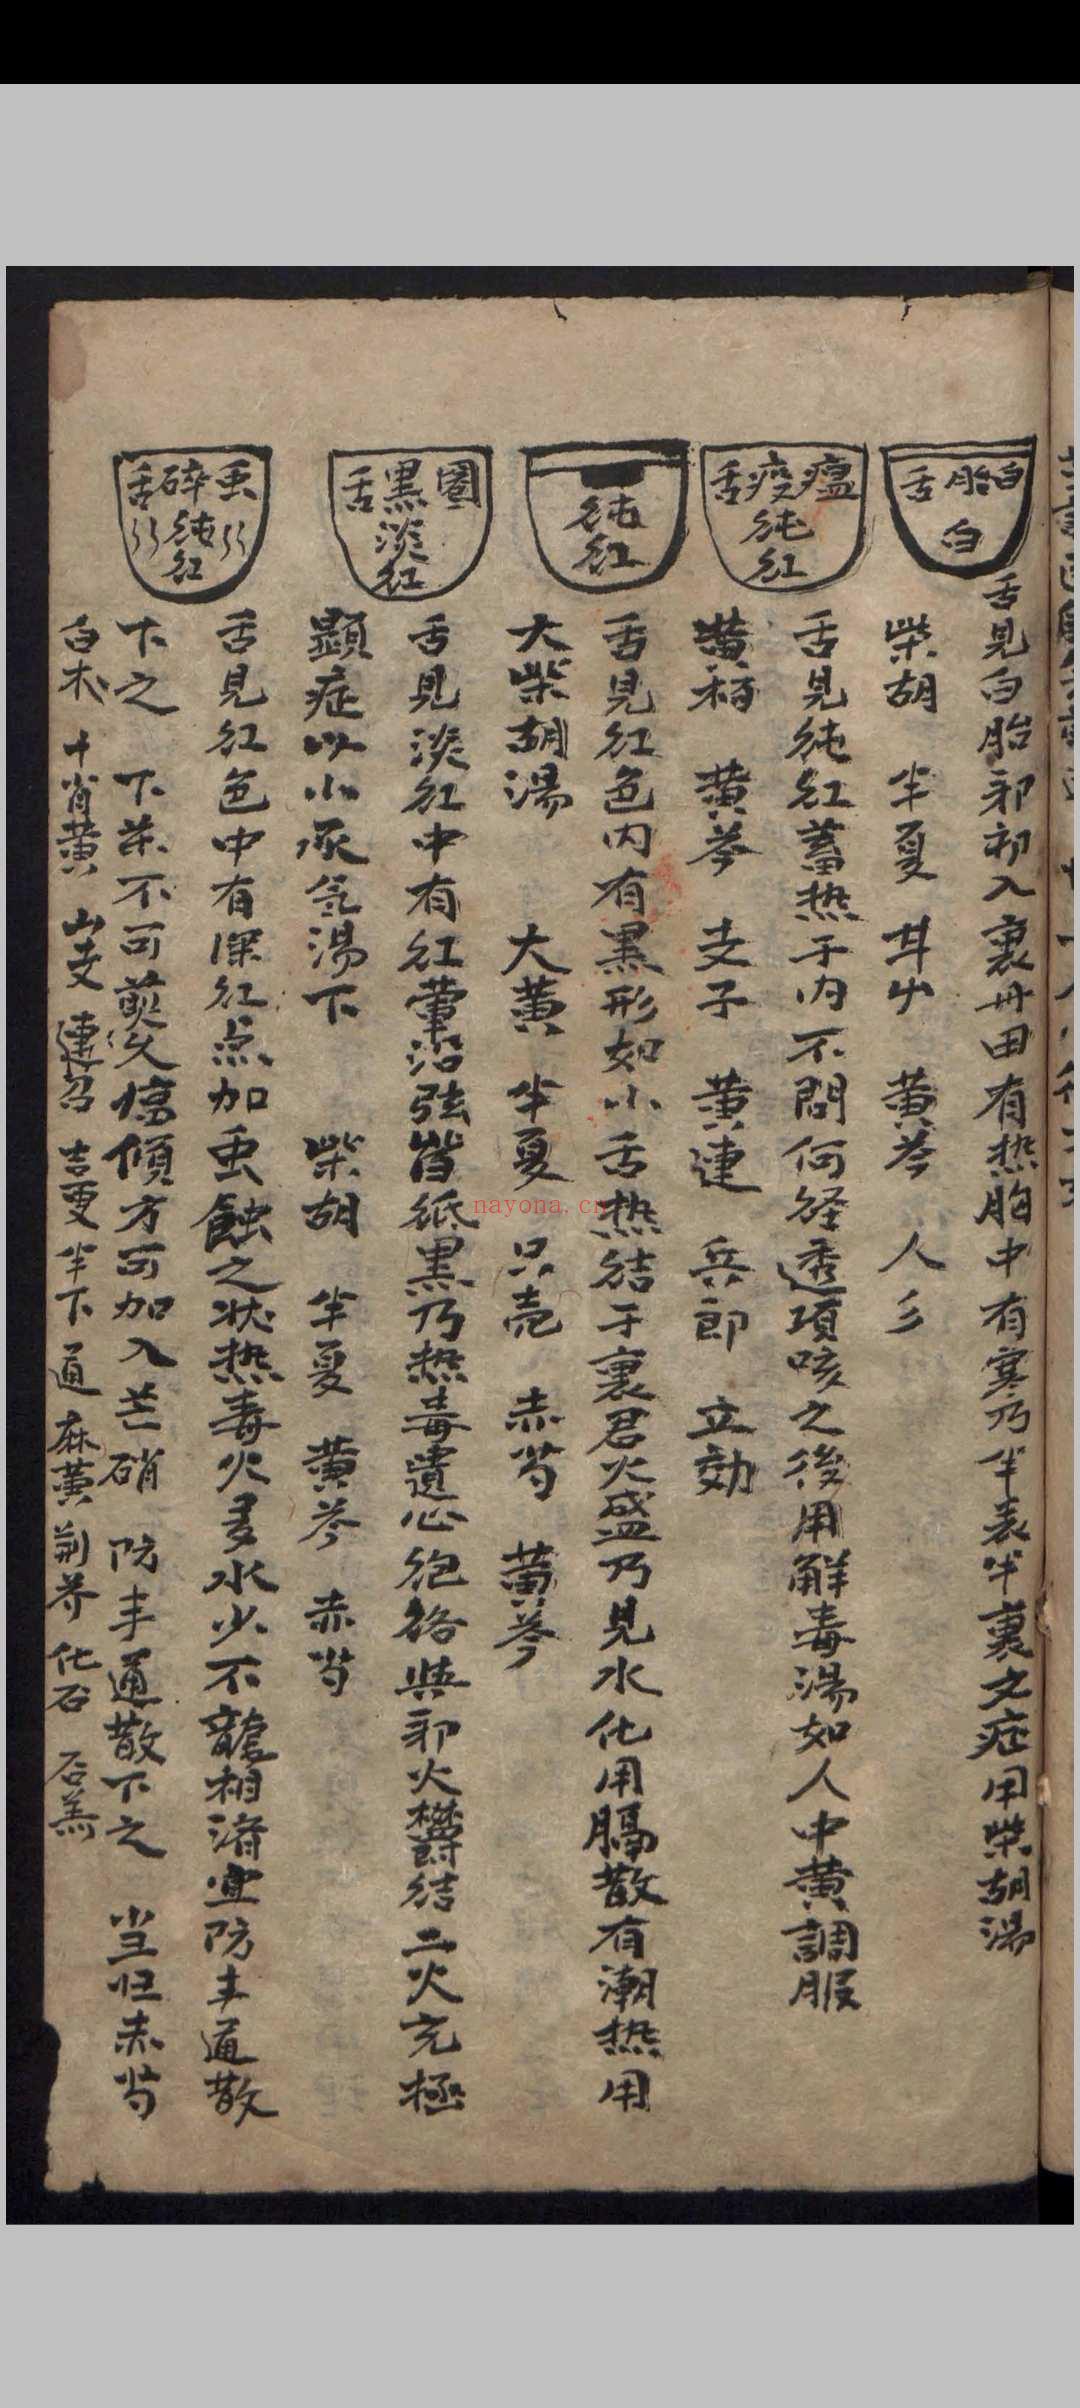 白胎舌
白
舌見白胎邪初入裏丹田有热胸中有寒乃半表半裏之症用柴胡湯
柴胡 半夏 甘屮 黄芩 人彡
瘟疫舌
純红
舌見純红蓄热于内不問何経透項咳之後用解毒湯如人中黄調服
黄栢 黄芩 支子 黄連 兵郎 立効
純红
舌見红色内有黒形如小舌热结于裏君火盛乃見水化用膈散有潮热用
大柴胡湯 大黄 半夏 只壳 赤芍 黄芩
圏黒舌
淡红
舌見淡红中有红暈沿弦皆紙黒乃热毒遺心绝络與邪火欝结二火充極
顕症以小承气湯下 柴胡 半夏 黄芩 赤芍
虫碎舌
純红
舌見红色中有深红点加虫蝕之状热毒火多水少不龍相済宜防丰通散
下之 下茶不可煎久 傾方可加入芒硝 防丰通散下之 当归赤芍
白木 甘肖黄 山支 連召 吉更 半下 通 麻黄 荆芥 化石 石羔
nayona.cn